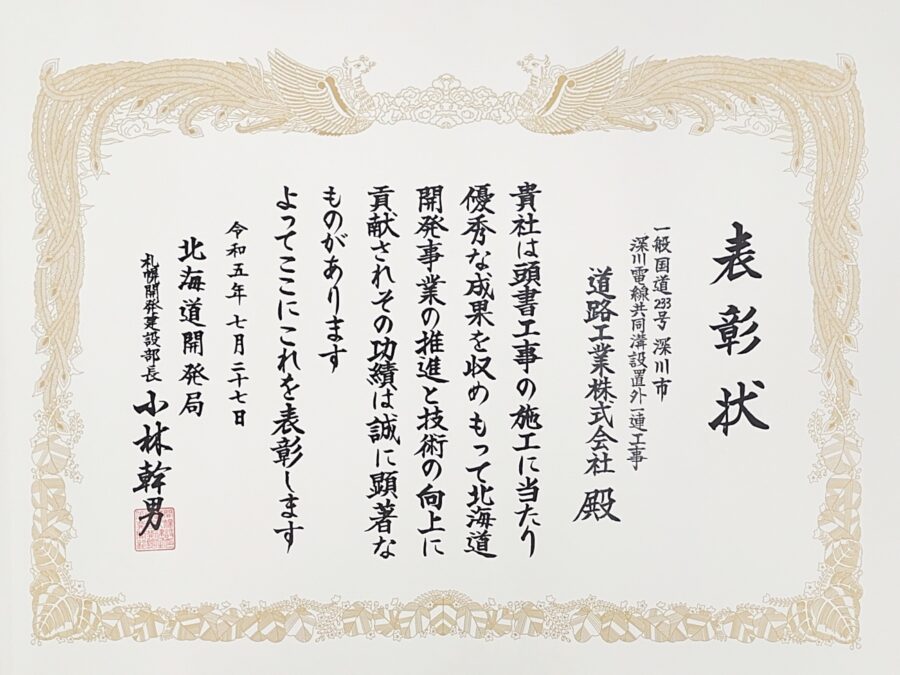 表彰状
一般国道233号 深川市
深川電線共同溝設置外一連工事
道路工業株式会社 殿
貴社は頭書工事の施工に当たり
優秀な成果を収めもって北海道
開発事業の推進と技術の向上に
貢献されその功績は誠に顕著な
ものがあります
よってここにこれを表彰します
令和五年 七月 二十七日
北海道開発局
札幌開発建設部長 小林幹男